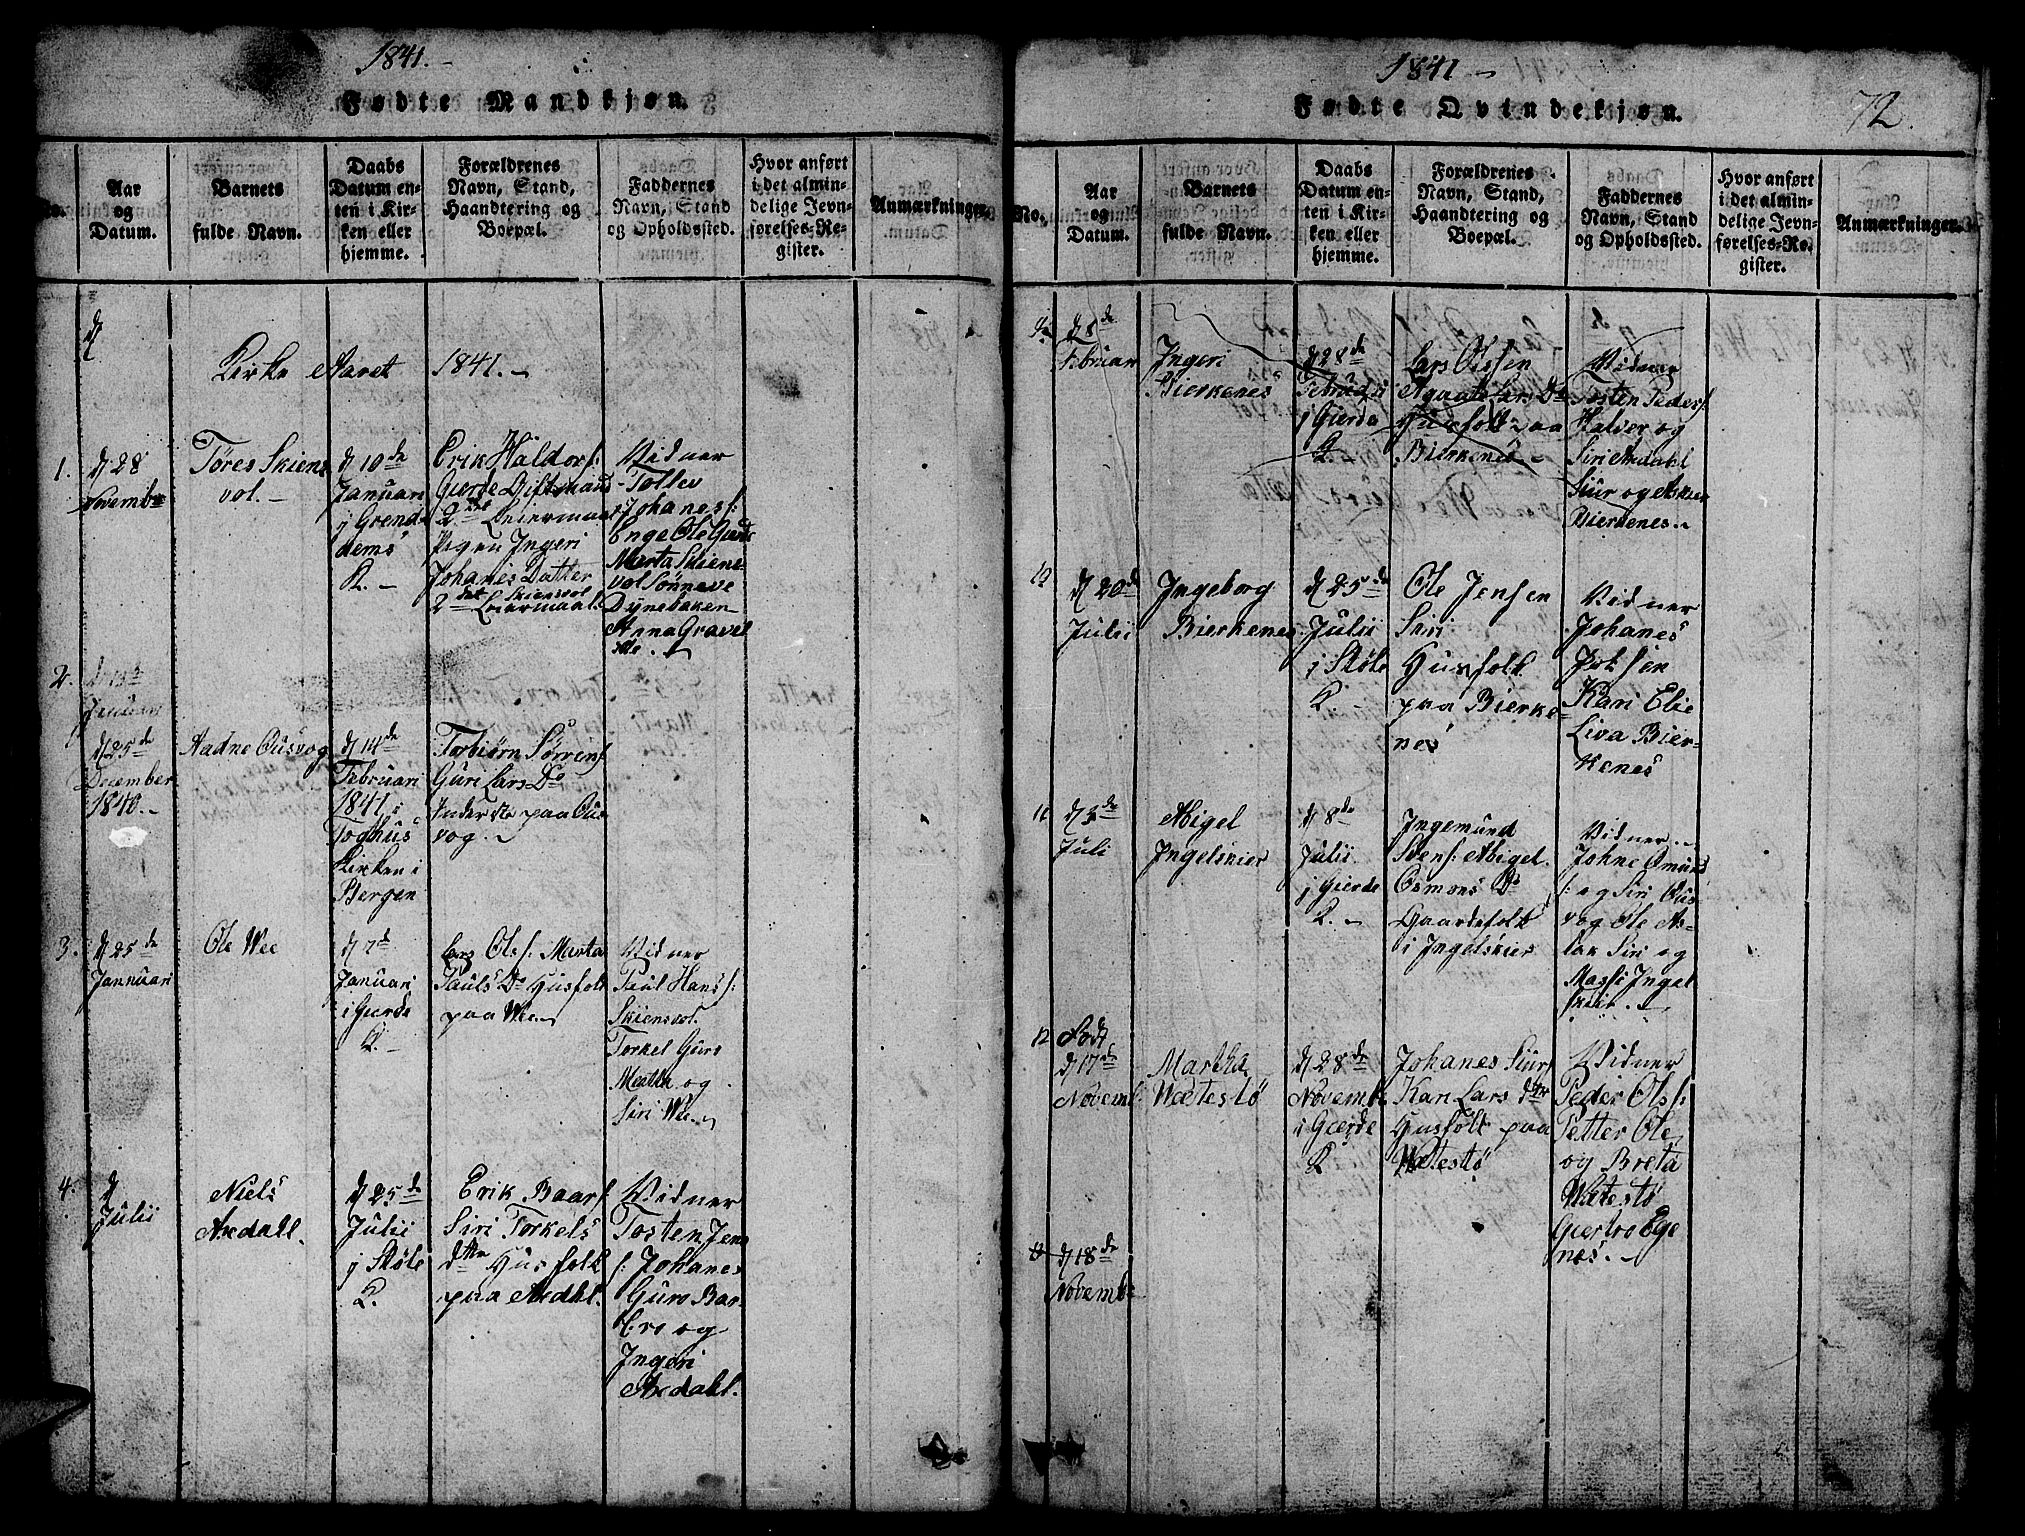 1841.-
Fødte Mandkjøn.
No.
Aar
og
Datum.
Barnets
fulde Navn.
Daabs
Datum en-
ten i Kir-
ken eller
hjemme.
Forældrenes
Navn, Stand,
Haandtering og
Boepæl.
Faddernes
Navn, Stand
og Opholdssted.
Hvor anført
i det almin-
delige Jevn-
førelses-Re-
gister.
Anmærkninger.
d
Kirke Aaret 1841.-
1.
d 28
Novembr
Tøres Skiens
vol.-
d 10de
Januari
j Grend
K.-
Erik Haldors:
Gierde Giftmand
2det Leiermaal
Pigen Ingeri
Johanis Datter
Skiensvol
2det Leiermaal.
Vidner
Tollev
Johanes:
Inge Ole Gierde
Marta Skiens
vol Sønneve
Dynebaken
Anna Gravel
2.
Januari
d 25de
December
1840.-
Aadne Ousvog
d 14de
Februari
1841 i
Toghus
Kirken i
Bergen
Torbiørn Sørrens
Guri Lars Dr
Inderste paa Ous
vog.-
3.
d 25de
Januari
Ole Wee
d 7de
Januari
i Gierde
K.-
Lars Ols: Marta
Pauls Dr Husfolk
paa Wee.-
Vidner
Paul Hans:
Skiensvol.
Torkel Guro
Martha og
Siri Wee.-
4.
d
Julii
Niels
Axdahl.
d 25de
Julii
j Skøle
K.
Erik Baars:
Siri Torkels
dtter Husfolk
paa Axdahl.
Vidner
Tosten Jens
: Johanes
Guro Bar-
bro og
Ingeri
Axdahl.
1841-
Fødte Qvindekjøn.
72.
No.
Aar
og
Datum.
Barnets
fulde Navn.
Daabs
Datum en-
ten i Kir-
ken eller
hjemme.
Forældrenes
Navn, Stand,
Haandtering og
Boepæl.
Faddernes
Navn, Stand
og Opholdssted.
Hvor anført
i det almin-
delige Jevn-
førelses-Re-
gister.
Anmærkninger.
Februar
Ingeri
Bierkenes
d 28de
Februari
j Gierde
K.-
Lars Olssen
Agaata Lars Dr
Husfolk paa
Bierkenes-
Vidner
Tosten Peders:
Halver og
Siri Axdahl
Siur og
Bierkenes.-
10
d 20de
Julii
Ingeborg
Bierkenes
d 25de
Julii
i Skøle
K.
Ole Jensen
Siri
Husfolk
paa Bierke
nes
Vidner
Johanes
Kari Elie
Liva Bier-
kenes
11
d 3de
Juli
Abigel
Ingelskier
d 8de
Julii
j Gierde
K.-
Ingemund
Stens: Abigel
Osmons Dr
Gaardsfolk
i Ingelskier
Vidner.-
Johne Omuns
: og Siri Ous
vog Ole As-
lak Siri og
Masse Ingel
skier.-
12
Født
d 17de
Novemb.
Martha
Wætestø
d 28de
Novemb.
i Gierde
K
Johanes Siurs
Kari Lars dtter
Husfolk paa
Wætestø
Vidner
Peder Ols:
Petter Ole
og Breta
Wætestø
Giertro Ege
nes.-
d 18de
Novembr